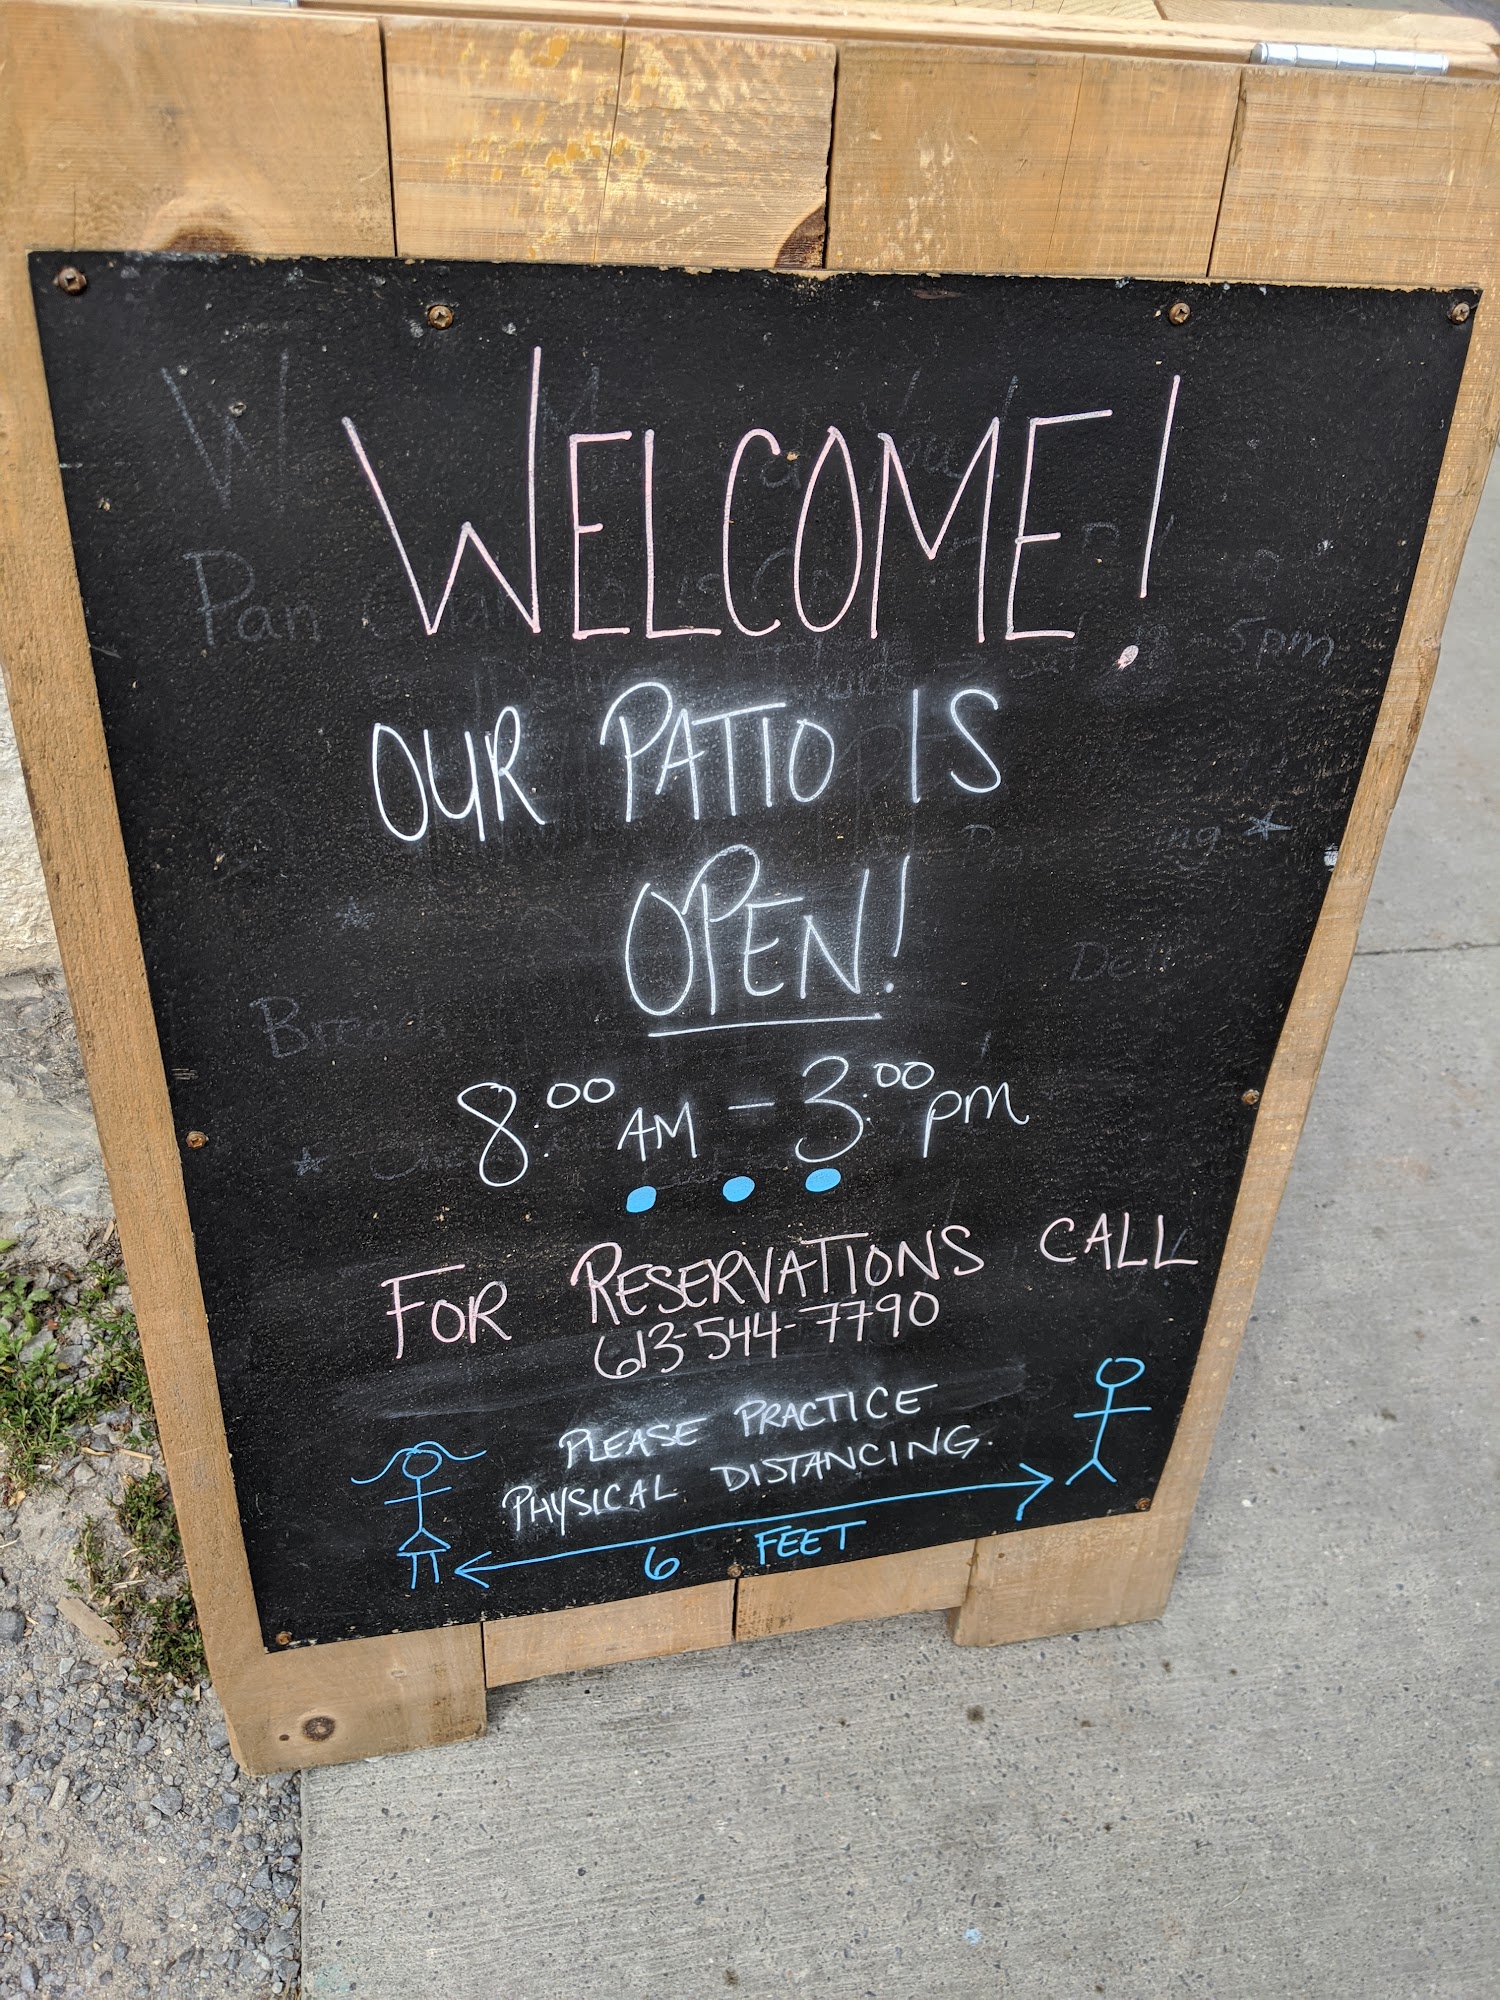 WELCOME!
OUR PATIO IS
OPEN!
8:00 AM - 3:00 pm
FOR RESERVATIONS CALL
613-544-7790
PLEASE PRACTICE
PHYSICAL DISTANCING.
6 FEET
Pan
5pm
Breads
Deli